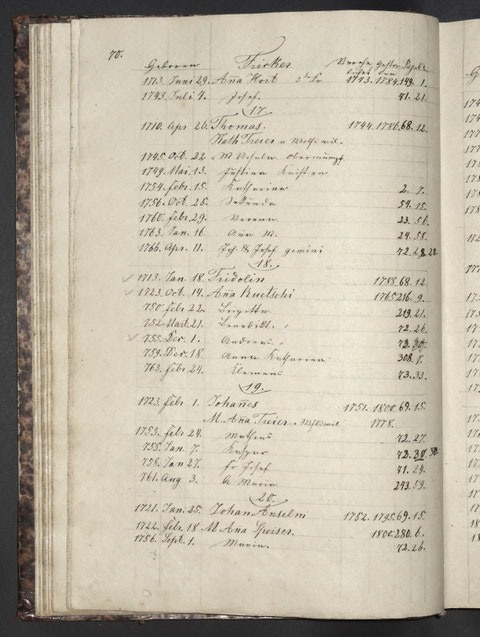 70.
Geboren Fricker
1713. Juni 29. Ana Hort 1743. 1784. 149. 1.
1743. Juli 4. Josef. 41. 21.
17.
1710. Apr 26. Thomas. 1744. 1786. 68. 12.
Kath Treier v Wolfswil.
1745. Oct. 22
1749. Mai. 13.
1754. febr. 15. Katharina 2. 7.
1756. Oct. 28. 54. 15.
1760. febr. 29. Verena 23. 56.
1763. Jan. 16. Ana M. 24. 58.
1766. Apr. 11. Joh. & Josef gemini 72.
18.
1713. Jan. 18. Fridolin 1788. 68. 12.
1723. Oct. 14. Ana Ruetschi 1765. 216. 9.
750. febr 22. Brigitta 219. 21.
752. Mart. 21. Benedikt. 72. 26.
755. Dec. 1. Andreas. 72. 30.
759. Dec. 18. Anna Katharina 308. 1.
763. febr 24. Clemens 73. 33.
19.
1723. febr. 1. Johannes 1751. 1800. 69. 15.
M. Ana Treier 1778.
1753. febr. 24. Mathias 72. 27.
755. Jan. 7. Kaspar 72.
758. Jan 27. fr Josef 41. 24.
761. Aug 3. A. Maria 243. 59.
20.
1721. Jan. 25. Johan Anselm 1752. 1795. 69. 15.
1722. febr. 18 M Ana Speiser. 1800. 280. 6.
1756. Sept. 1. Maria. 72. 26.